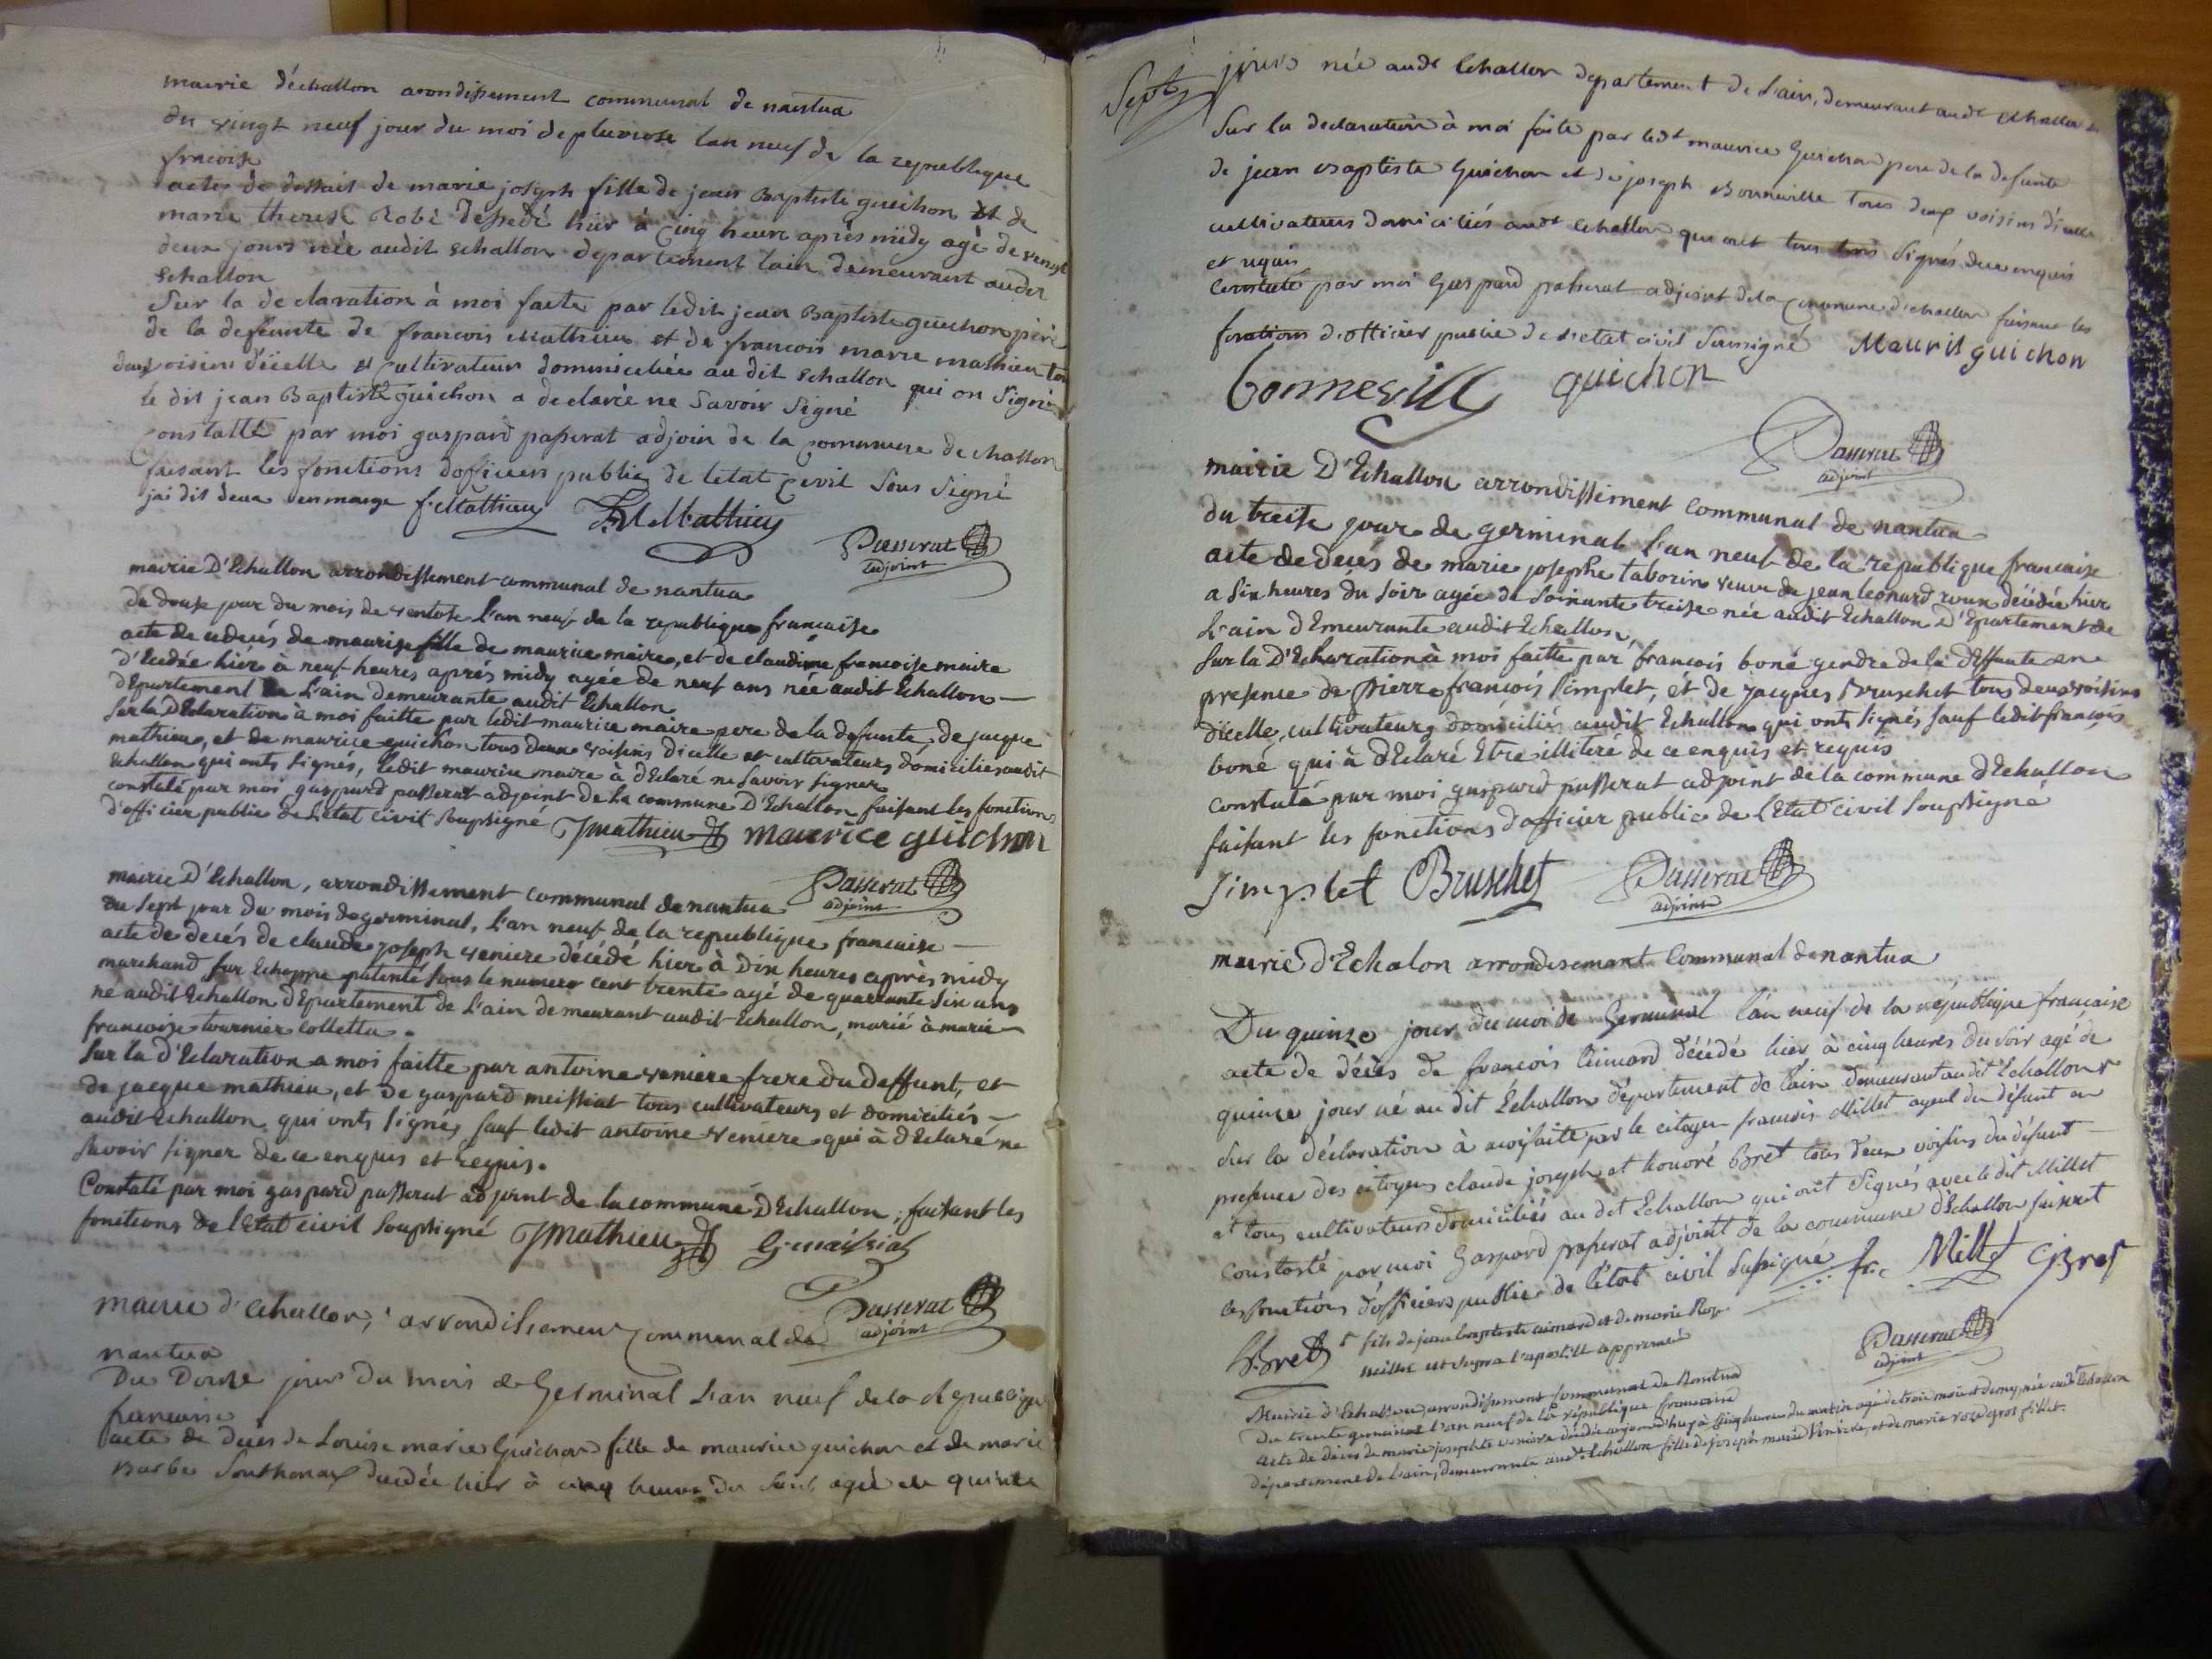 mairie d'échallon arondissement communal de nantua
du vingt neuf jour du moi de pluviose lan neuf de la republique
francoise
actes de dessait de marie joseph fille de jean Baptiste guichon et de
marie therese Robé dessedé hier à cinq heure après midy agé de vingt
deux jours née audit echallon departement lain demeurant audit
echallon
Sur la declaration à moi faite par ledit jean Baptiste guichon père
de la defeunte de francois Mathieu et de francois marie mathieu tou
deux voisins diĉelle et cultivateur dominiciliée au dit echallon qui on Signé
le dit jean Baptiste guichon a declaré ne Savoir Signé
Constatté par moi gaspard passerat adjoin de la commune dechallon
faisant les fonctions dofficier public de letat civil Sous Signé
jai dit deux en marge f. Mathieu F. M. Mathieu
Passerat
adjoint
mairie D'Echallon arrondissement communal de nantua
du douse jour du mois de ventose l'an neuf de la republique francaise
acte de decés de maurise fille de maurice maire, et de claudine francoise maire
d'Ecédée hiér à neuf heures aprés midy agée de neuf ans née audit Echallon
dEpartement de L'ain demeurante audit Echallon
Sur la DEclaration à moi faitte par ledit maurice maire pere de la defunte de jacque
mathieu, et de maurice guichon tous deux voisins dicelle et cultivateurs domiciliés audit
Echallon qui onts signés, ledit maurice maire à dEclaré ne Savoir signer
constaté par moi gaspard passerat adjoint de la commune D'Echallon faisant les fonctions
d'officier public de l'Etat civil Soussigné Jmathieu maurice guichon
Passerat
adjoint
mairie D'Echallon, arrondissement communal de nantua
du Sept jour du mois de germinal, l'an neuf de la republique francaise
acte de decés de claude joseph veniere décédé hier à Dix heures après midy
marchand sur Echoppe patenté sous le numero cent trente agé de quarante Six ans
né audit Echallon dEpartement de L'ain demeurant audit Echallon, marié à marie
francoise tournier colletta.
Sur la d'Eclaration a moi faitte par antoine veniere frere du deffunt, et
de jacque mathieu, et de gaspard meissiat tous cultivateurs et domiciliés
audit Echallon qui onts signés sauf ledit antoine veniere qui à dEclaré ne
Savoir signer de ce enquis et requis.
Constaté par moi gaspard passerat adjoint de la commune D'Echallon, faisant les
fonctions de l'Etat civil Soussigné Jmathieu G. maissiat
Passerat
adjoint
mairie d'Echallon, arrondissement communal de
nantua
Du Douze jour du mois de Germinal l'an neuf de la Republique
francaise
acte de décès de Louise marie Guichon fille de maurice guichon et de marie
Barbe Southonax decedée hier à cinq heures du Soir agée de quinze
Sept jours née audt Echallon departement de L'ain, demeurant audt Echallon
Sur la declaration à moi faite par ledt maurice Guichon pere de la defunte
de jean Baptiste Guichon et de joseph Bonneville tous deux voisins d'icelle
cultivateurs domiciliés audt Echallon qui ont tous Signés de ce enquis
et requis
Constaté par moi Gaspard passerat adjoint de la Commune d'echallon faisant les
fonctions d'officier public de l'etat civil Soussigné Mauris guichon
bonneville guichon
Passerat
adjoint
mairie D'Echallon arrondissement communal de nantua
du treise jour de germinal l'an neuf de la republique francaise
acte de decés de marie josephe taborin veuve de jean leonard roux décédée hier
a Six heures du Soir agée de Soixante treise née audit Echallon D'Epartement de
L'ain dEmeurante audit Echallon,
Sur la D'Eclaration à moi faitte par francois boné gendre de la deffunte en
presence de pierre francois Simplet, ét de jacques Bruschet tous deux voisins
dicelle, cultivateurs domiciliés audit Echallon qui onts signés, sauf ledit francois
boné qui à dEclaré Etre illitéré de ce enquis et requis
constaté par moi gaspard passerat adjoint de la commune dEchallon
faisant les fonctions d'officier public de l'Etat civil Soussigné
Simplet Bruschet Passerat
adjoint
mairie d'Echalon arrondisemant Communal de nantua
Du quinze jour du moi de Germinal l'an neuf de la république française
acte de décès de françois Aimard décédé hier à cinq heures du soir agé de
quinze jour né au dit Echallon département de l'ain demeurant au dit Echallon
Sur la déclaration à moi faite par le citoyen francois Millet ayeul du défunt en
presence des citoyens claude joseph et honoré Bret tous deux voisins du défunt
et tous cultivateurs domiciliés au dit Echallon qui ont Signés avec le dit Millet
constaté par moi Gaspard passerat adjoint de la commune d'Echallon faisant
les fonctions d'officiers public de l'état civil Susigné fr. Millet CjBret
h.Bret fils de jean baptiste aimard et de marie Rose
millet ut supra l'apostille approuvé
Passerat
adjoint
Mairie d'Echallon, arrondissement Communal de Nantua
Du trente germinal l'an neuf de la république francaise
Acte de décès de marie josephte veniere décédée aujourd'huy à cinq heures du matin agé de trois mois et demy, née audt Echallon
département de L'ain, demeurante audt Echallon fille de joseph marie Veniere, et de marie roze gros fillet.